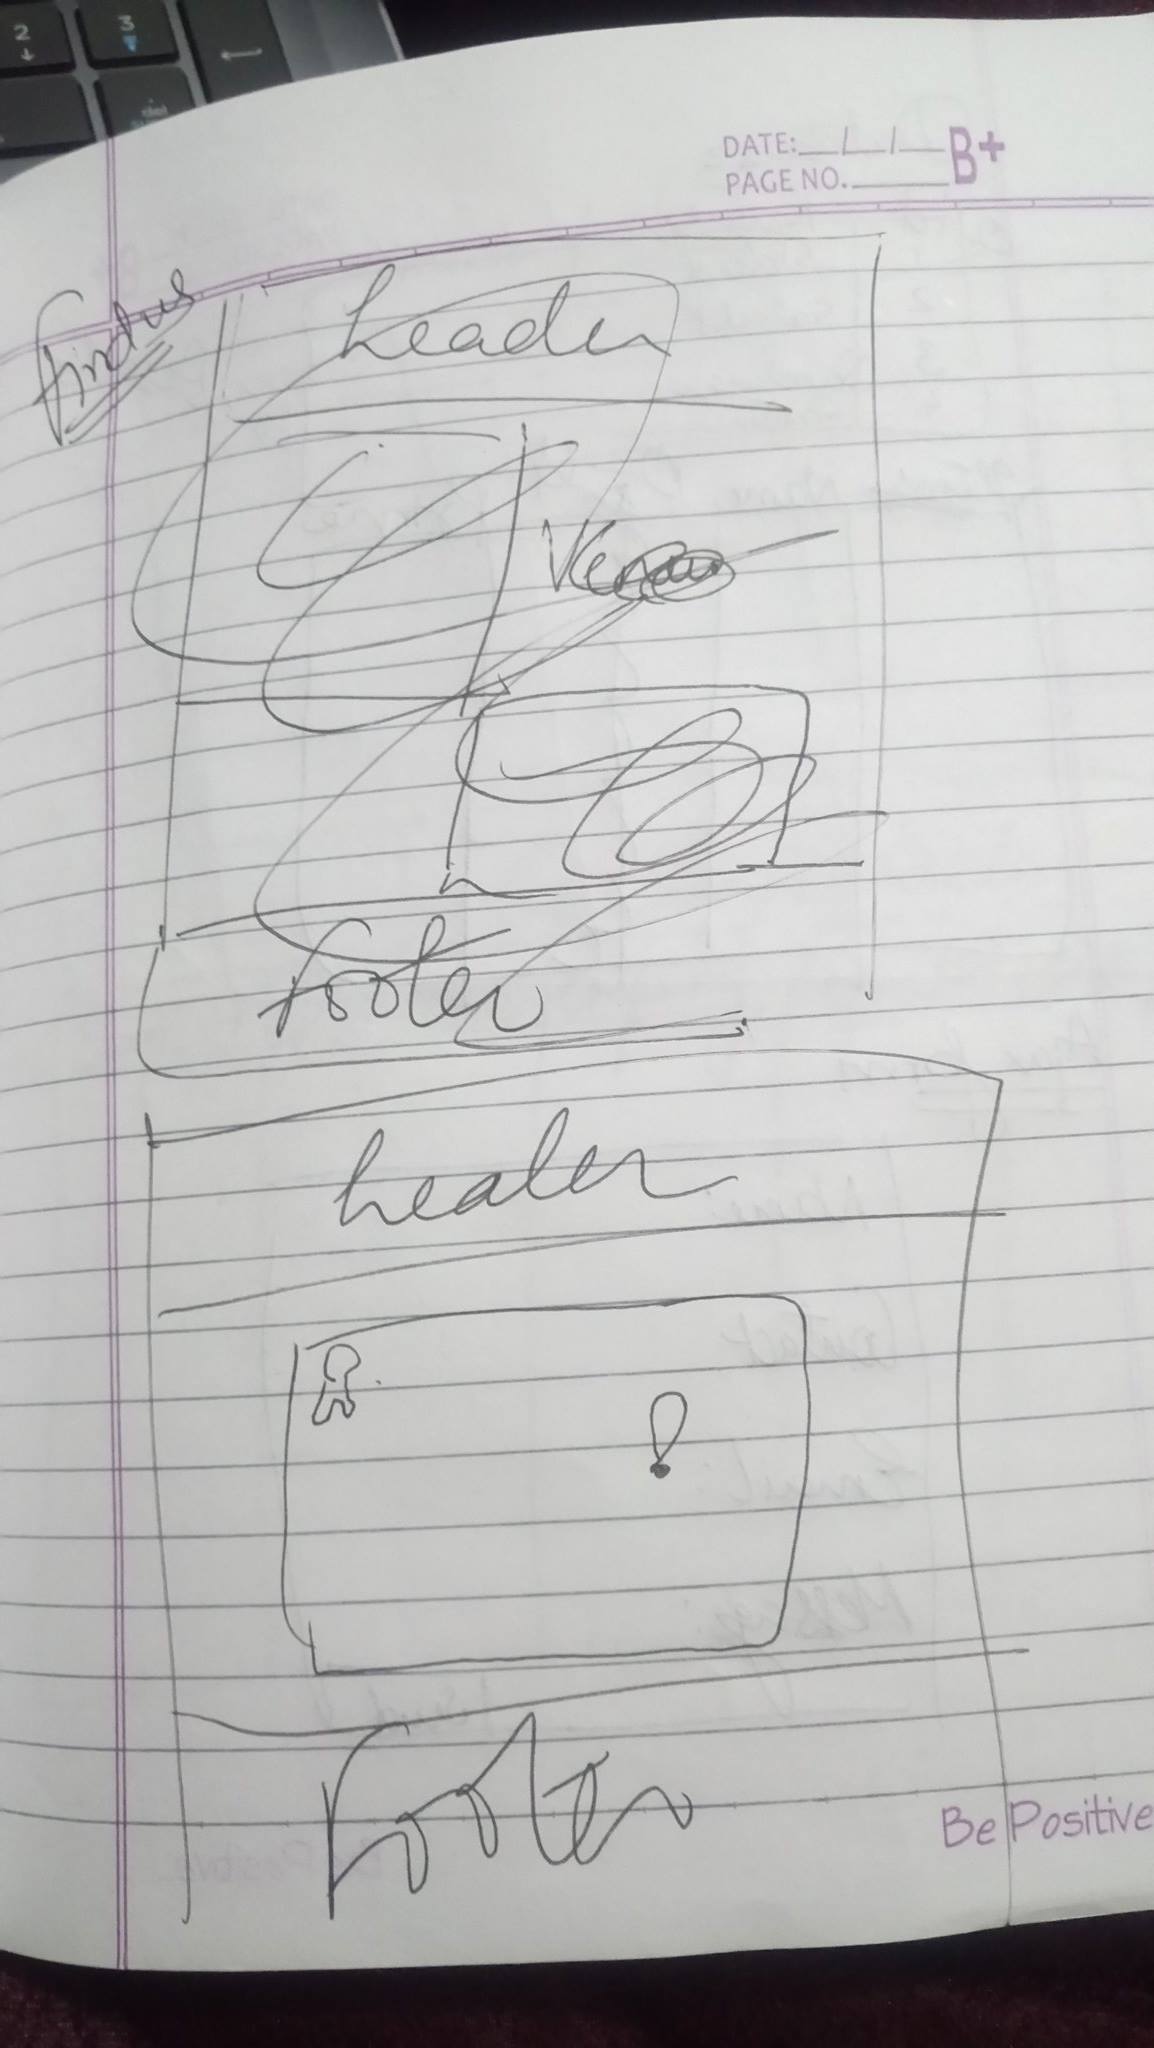 DATE: __/__/__ B+
PAGE NO. ____
find us
header
footer
header
!
footer
Be Positive
2
3